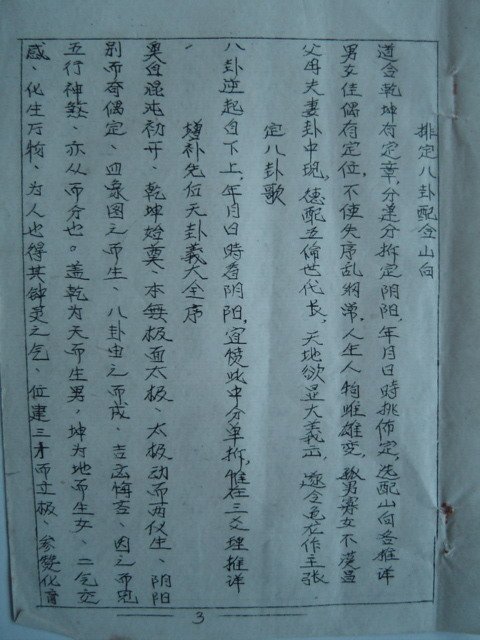 排定八卦配合山向
道合乾坤有定章，分逆分拆定阴阳，年月日時挑佈定，先配山向答推详
男女佳偶有定位，不使失序乱纲常，人生人物雌雄变，孤男寡女不漫当
父母夫妻卦中现，德配五倫世代长，天地欲显大義正，遂令包尤作主张
定八卦歌
八卦逆起自下上，年月日時看阴阳，宜使此中分单拆，惟在三爻理推详
增补先位天卦義大全序
奥自混沌初开、乾坤始奠、本無极面太极、太极动而两仪生、阴阳
别而奇偶定、四象因之而生、八卦由之而成、吉凶悔吝、因之而見
五行神煞、亦从而分也。盖乾为天而生男，坤为地而生女、二气交
感、化生万物、为人也得其钟灵之气、位建三才而立极、参赞化育
3